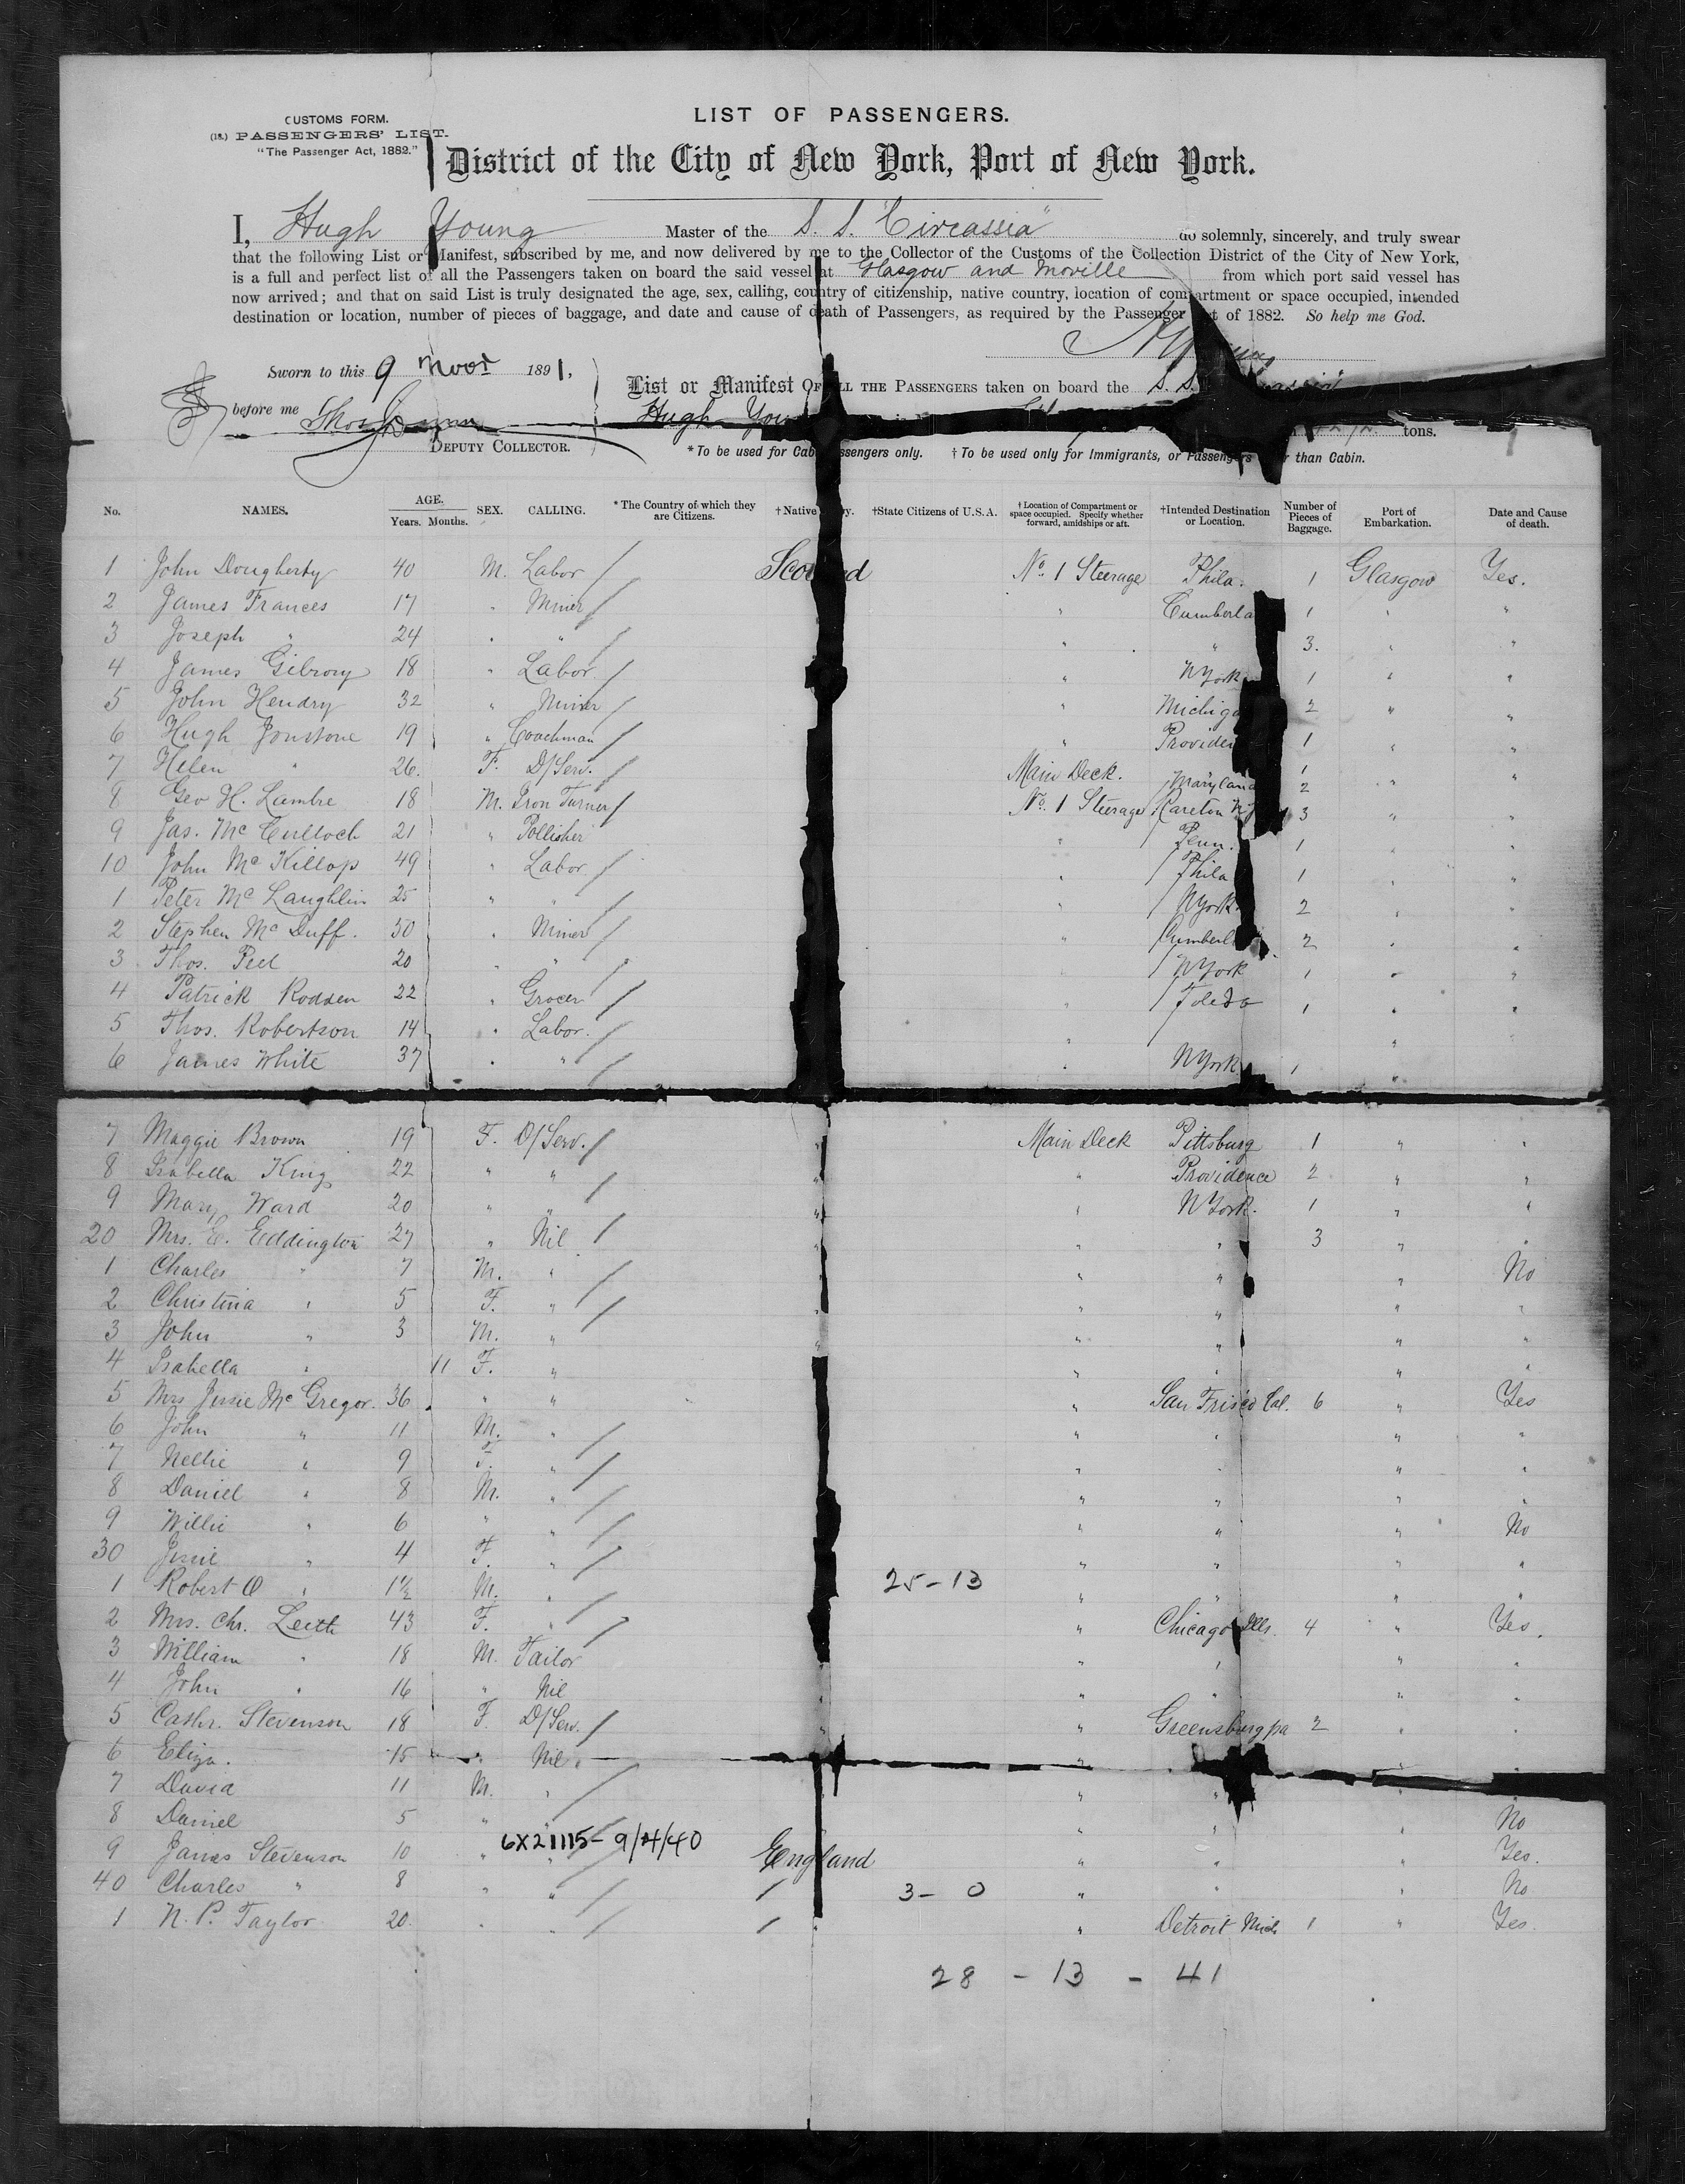 CUSTOMS FORM.
(18.) PASSENGERS' LIST.
"The Passenger Act, 1882."
LIST OF PASSENGERS.
District of the City of New York, Port of New York.
I, Hugh Young Master of the S. S. "Circassia" do solemnly, sincerely, and truly swear
that the following List or Manifest, subscribed by me, and now delivered by me to the Collector of the Customs of the Collection District of the City of New York,
is a full and perfect list of all the Passengers taken on board the said vessel at Glasgow and Moville from which port said vessel has
now arrived; and that on said List is truly designated the age, sex, calling, country of citizenship, native country, location of compartment or space occupied, intended
destination or location, number of pieces of baggage, and date and cause of death of Passengers, as required by the Passenger Act of 1882. So help me God.
Sworn to this 9 1891,
List or Manifest OF ALL THE PASSENGERS taken on board the S. S.
before me Thos
Hugh tons.
DEPUTY COLLECTOR.
*To be used for Cabin Passengers only. †To be used only for Immigrants, or Passengers other than Cabin.
No. NAMES. AGE. Years. Months. SEX. CALLING. *The Country of which they are Citizens. †Native †State Citizens of U.S.A. †Location of Compartment or space occupied. Specify whether forward, amidships or aft. †Intended Destination or Location. Number of Pieces of Baggage. Port of Embarkation. Date and Cause of death.
1 John Dougherty 40 M. Labor / Scotland No. 1 Steerage Phila. 1 Glasgow Yes.
2 James Frances 17 " Miner / " Cumberla 1 " "
3 Joseph " 24 " " / " " 3. " "
4 James Gilrory 18 " Labor / " N York 1 " "
5 John Hendry 32 " Miner / " Michiga 2 " "
6 Hugh Jonstone 19 " Coachman / " Providen 1 " "
7 Helen " 26. F. D/Serv. / Main Deck. Maryland 1 " "
8 Geo H. Lambie 18 M. Iron Turner / No. 1 Steerage 2 " "
9 Jas. McCulloch 21 " Pollisher " Penn. 1 " "
10 John McKillop 49 " Labor / " Phila 1 " "
1 Peter McLaughlin 25 " " / " N York 2 " "
2 Stephen McDuff. 30 " Miner / " Cumberl 2 " "
3 Thos. Peel 20 " " / " N York 1 " "
4 Patrick Rodden 22 " Grocer / " Toledo 1 " "
5 Thos. Robertson 14 " Labor. / " " "
6 James White 37 " " / " N York 1 "
7 Maggie Brown 19 F. D/Serv. / " Main Deck Pittsburg 1 " "
8 Isabella King 22 " " / " " Providence 2 " "
9 Mary Ward 20 " " " " N York. 1 " "
20 Mrs. E. Eddington 27 " Nil / " " " 3 " "
1 Charles " 7 M. " / " " " No
2 Christina " 5 F. " / " " " "
3 John " 3 M. " " " " " "
4 Isabella " 11 F. " " " " "
5 Mrs Jessie McGregor. 36 " " " San Frisco Cal. 6 " Yes
6 John " 11 M. " / " " " "
7 Nellie " 9 F. " / " " " "
8 Daniel " 8 M. " / " " " "
9 Willie " 6 " " / " " " No
30 Jessie " 4 F. " / " " " "
1 Robert O " 1½ M. " / 25-13 " " " "
2 Mrs. Chr. Leith 43 F. " / " Chicago Ills. 4 " Yes.
3 William " 18 M. Tailor " " " "
4 John " 16 " Nil " " " "
5 Cathr. Stevenson 18 F. D/Serv. / " " Greensburg pa 2 " "
6 Eliza. 15 " Nil. " " "
7 David 11 M. " / " " "
8 Daniel 5 " " " " No
6X21115-9/4/40
9 James Stevenson 10 " " / England " " " Yes.
40 Charles " 8 " " / / 3-0 " " " No
1 N. P. Taylor 20. " " / / " " Detroit Mich 1 " Yes.
28 - 13 - 41